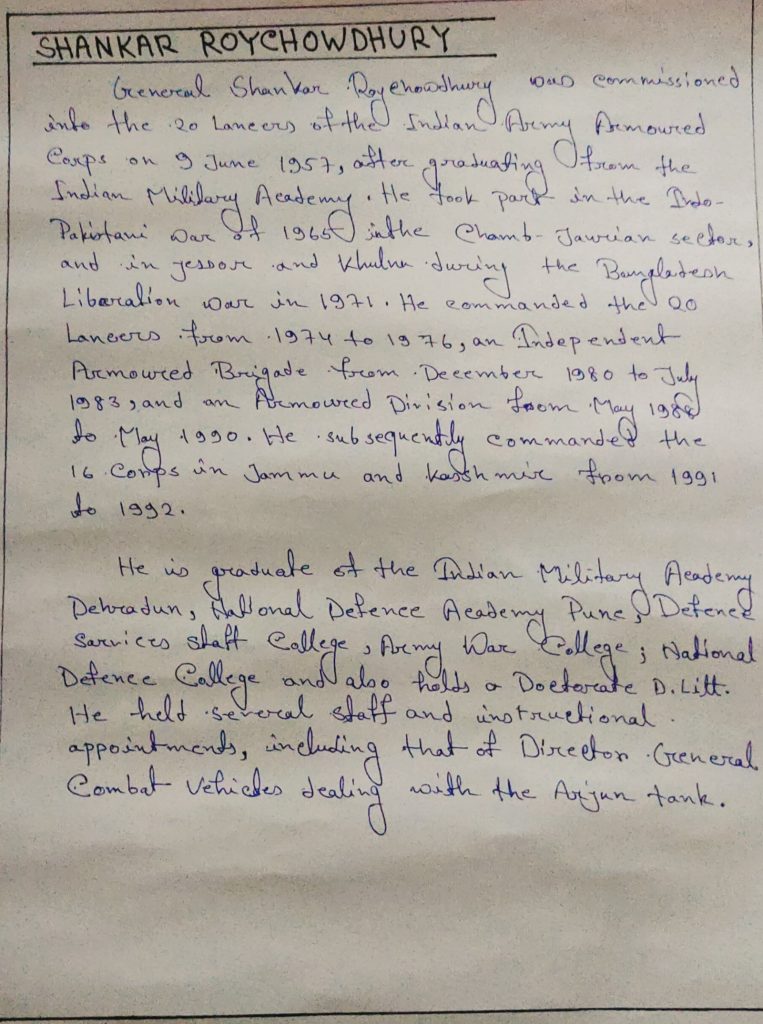 SHANKAR ROYCHOWDHURY
General Shankar Roychowdhury was commissioned
into the 20 Lancers of the Indian Army Armoured
Corps on 9 June 1957, after graduating from the
Indian Military Academy. He took part in the Indo-
Pakistani war of 1965 inthe Chamb-Jaurian sector,
and in jessore and Khulna during the Bangladesh
Libaration war in 1971. He commanded the 20
Lancers from 1974 to 1976, an Independent
Armoured Brigade from December 1980 to July
1983, and an Armoured Division from May 1988
to May 1990. He subsequently commanded the
16 Corps in Jammu and Kashmir from 1991
to 1992.
He is graduate of the Indian Military Academy
Dehradun, National Defence Academy Pune, Defence
Sarvices staff College, Army War College; National
Defence College and also holds a Doctorate D.Litt.
He held several staff and instructional
appointments, including that of Director General
Combat Vehicles dealing with the Arjun tank.